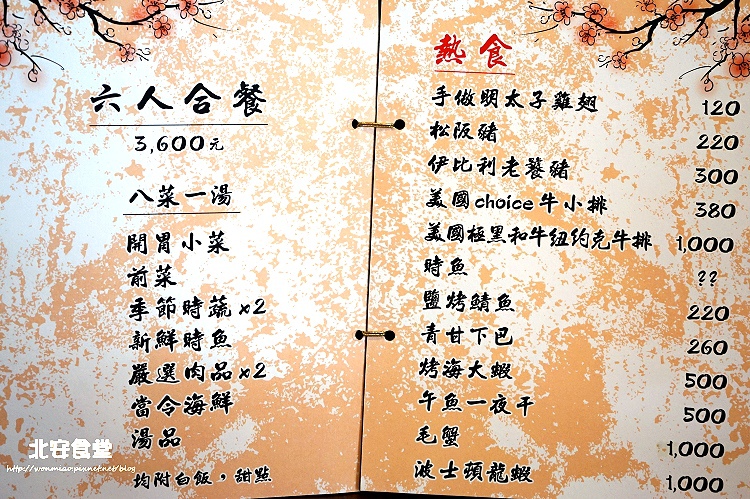 六人合餐
3,600元
八菜一湯
開胃小菜
前菜
季節時蔬x2
新鮮時魚
嚴選肉品x2
當令海鮮
湯品
均附白飯，甜點
熱食
手做明太子雞翅 120
松阪豬 220
伊比利老饕豬 300
美國choice牛小排 380
美國極黑和牛紐約克牛排 1,000
時魚 ??
鹽烤鯖魚 220
青甘下巴 260
烤海大蝦 500
午魚一夜干 500
毛蟹 1,000
波士頓龍蝦 1,000
北安食堂
http://vronmiao.pixnet.net/blog